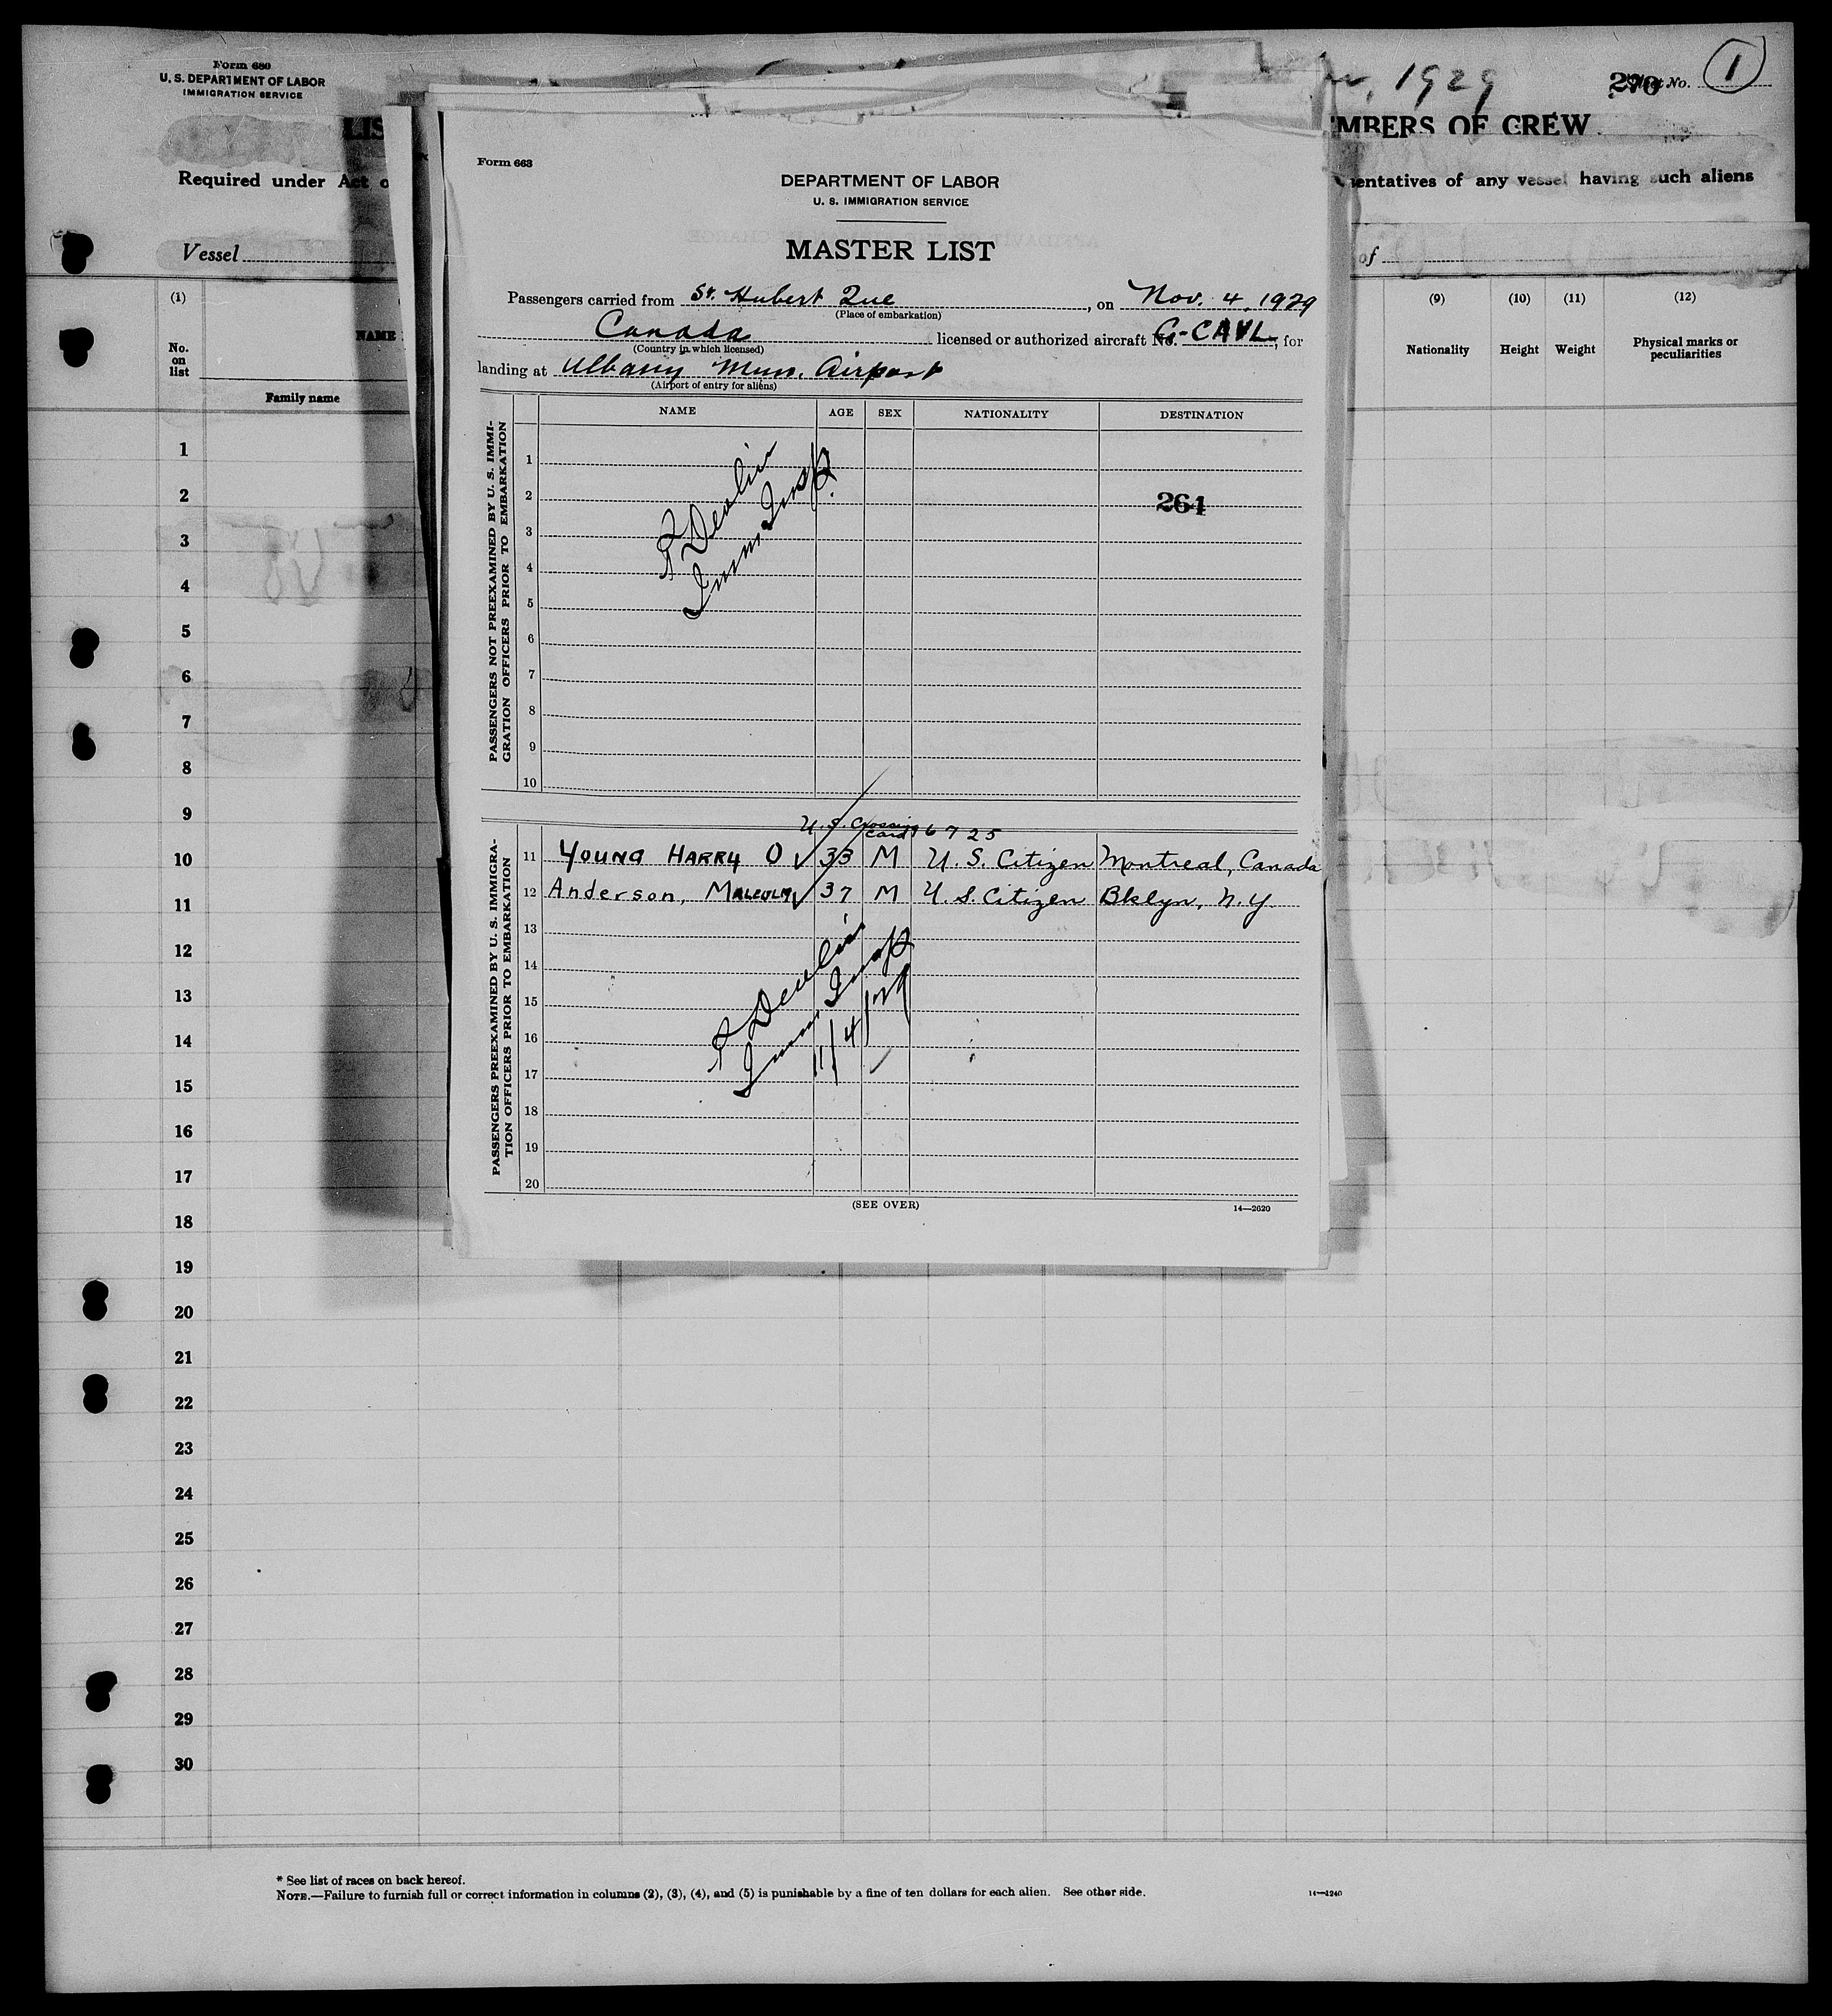 Form 680
U. S. DEPARTMENT OF LABOR
IMMIGRATION SERVICE
1929
276
No. 1
LIS
MBERS OF CREW
Required under Act o
entatives of any vessel having such aliens
Vessel
of
(1)
No. on list
NAME
Family name
(9)
Nationality
(10)
Height
(11)
Weight
(12)
Physical marks or peculiarities
Form 663
DEPARTMENT OF LABOR
U. S. IMMIGRATION SERVICE
MASTER LIST
Passengers carried from St. Hubert Que, on Nov. 4, 1929
(Place of embarkation)
Canada licensed or authorized aircraft No. G-CAVL, for
(Country in which licensed)
landing at Albany Mun. Airport
(Airport of entry for aliens)
NAME AGE SEX NATIONALITY DESTINATION
PASSENGERS NOT PREEXAMINED BY U. S. IMMI-
GRATION OFFICERS PRIOR TO EMBARKATION
1
2
264
3
4
5
6
7
8
9
10
P Devlin
Imm. Insp.
PASSENGERS PREEXAMINED BY U. S. IMMIGRA-
TION OFFICERS PRIOR TO EMBARKATION
U. S. Crossing Card 6725
11 YOUNG HARRY O 33 M U. S. Citizen Montreal, Canada
12 Anderson, MALCOLM 37 M U. S. Citizen Bklyn, N. Y.
13
14
15
16
17
18
19
20
P Devlin
Imm. Insp
11/4/29
(SEE OVER)
14—2620
1
2
3
4
5
6
7
8
9
10
11
12
13
14
15
16
17
18
19
20
21
22
23
24
25
26
27
28
29
30
* See list of races on back hereof.
NOTE.—Failure to furnish full or correct information in columns (2), (3), (4), and (5) is punishable by a fine of ten dollars for each alien. See other side.
14—1240